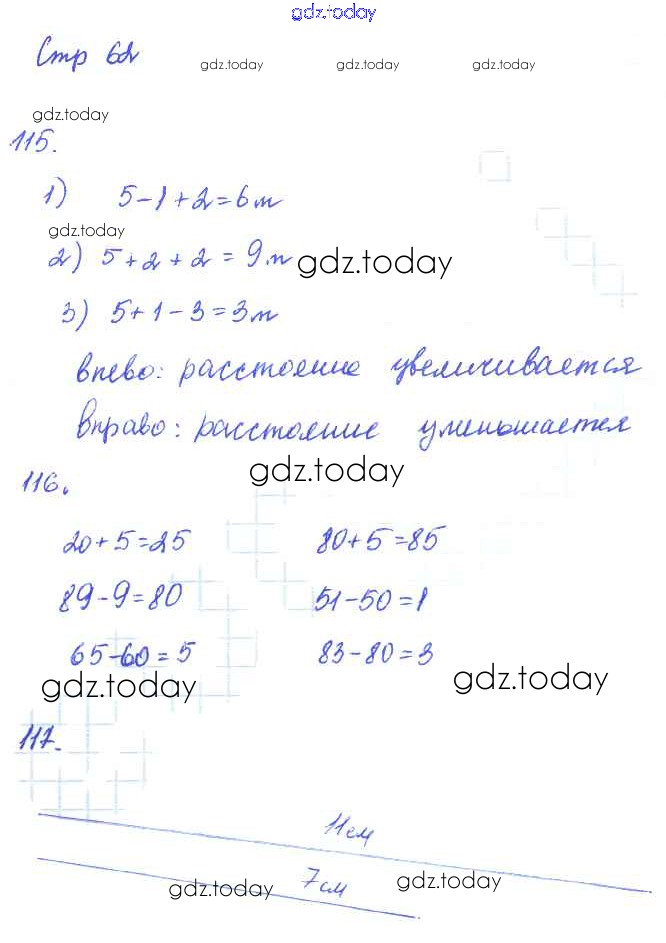 gdz.today
Стр 62
gdz.today gdz.today gdz.today
gdz.today
115.
1) 5-1+2=6м
gdz.today
2) 5+2+2=9м
gdz.today
3) 5+1-3=3м
влево: расстояние увеличивается
вправо: расстояние уменьшается
gdz.today
116.
20+5=25 80+5=85
89-9=80 51-50=1
65-60=5 83-80=3
gdz.today gdz.today
117.
11см
7см
gdz.today gdz.today